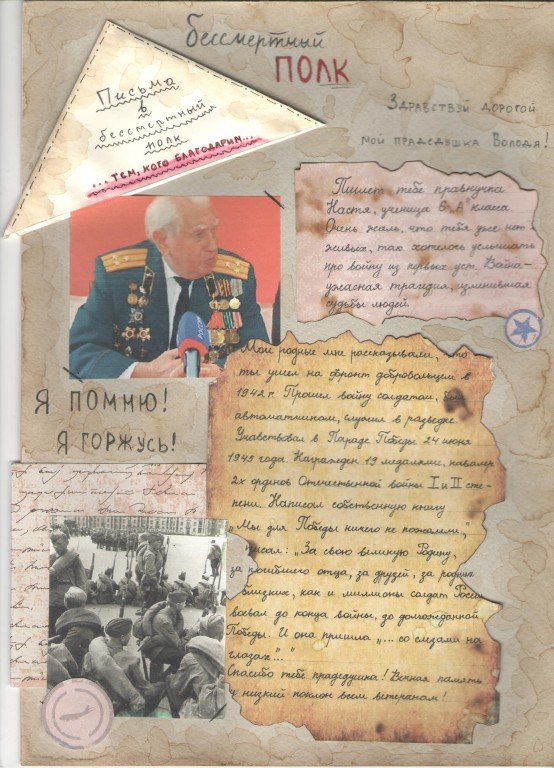 Бессмертный
ПОЛК
Письма
в
бессмертный
полк
...тем, кого благодарим...
Здравствуй дорогой
мой прадедушка Володя!
Пишет тебе правнучка
Настя, ученица 6 "А" класса
Очень жаль, что тебя уже нет
живых, так хотелось услышать
про войну из первых уст. Война-
ужасная трагедия, изменившая
судьбы людей.
РОССИЯ
Я ПОМНЮ!
Я ГОРЖУСЬ!
Мои родные мне рассказывали, что
ты ушел на фронт добровольцем в
1942 г. Прошел войну солдатом, был
автоматчиком, служил в разведке
Учавствовал в Параде Победы 24 июня
1945 года. Награжден 19 медалями, кавалер
2х орденов Отечественной войны I и II сте-
пени. Написал собственную книгу
„Мы для Победы ничего не пожалели",
писал: „За свою великую Родину,
за погибшего отца, за друзей, за родных
близких, как и миллионы солдат России
воевал до конца войны, до долгожданной
Победы. И она пришла „... со слезами на
глазах"..."
Спасибо тебе прадедушка! Вечная память
и низкий поклон всем ветеранам!